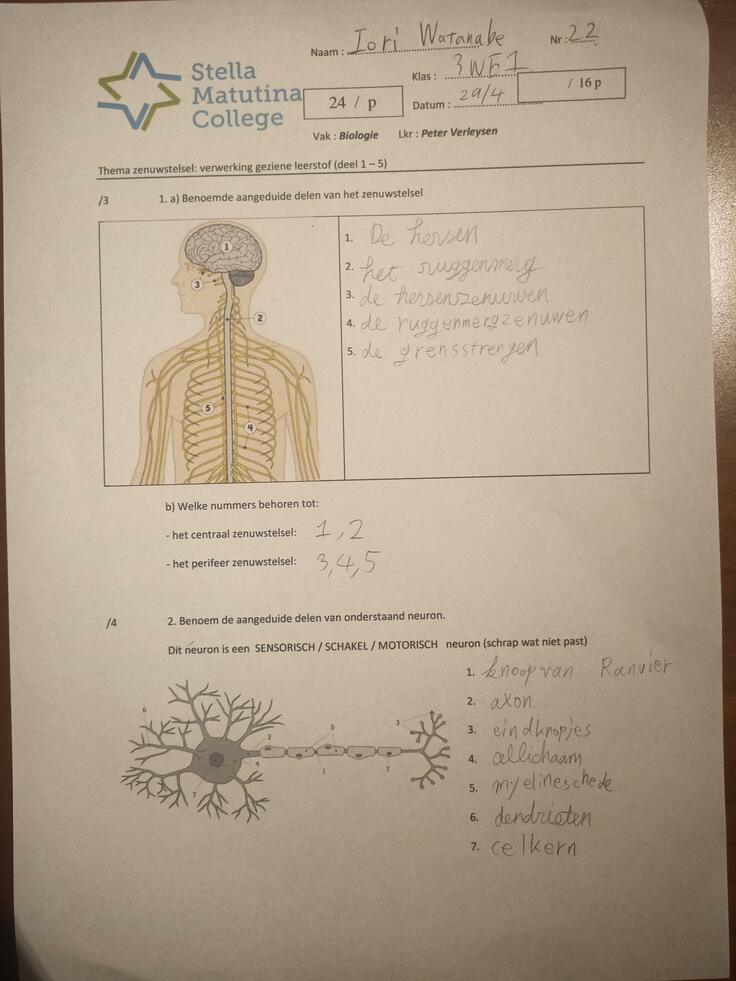 Naam : Iori Watanabe Nr : 22
Stella
Matutina
College
Klas : 3WE1
24 / p
Datum : 29/4
/ 16 p
Vak : Biologie Lkr : Peter Verleysen
Thema zenuwstelsel: verwerking geziene leerstof (deel 1 – 5)
/3 1. a) Benoemde aangeduide delen van het zenuwstelsel
1
3
2
5
4
1. De hersen
2. het ruggenmerg
3. de hersenzenuwen
4. de ruggenmergzenuwen
5. de grensstrengen
b) Welke nummers behoren tot:
- het centraal zenuwstelsel: 1, 2
- het perifeer zenuwstelsel: 3, 4, 5
/4 2. Benoem de aangeduide delen van onderstaand neuron.
Dit neuron is een SENSORISCH / SCHAKEL / MOTORISCH neuron (schrap wat niet past)
6
2
5
3
4
1
7
7
1. knoop van Ranvier
2. axon
3. eindknopjes
4. cellichaam
5. myelineschede
6. dendrieten
7. celkern